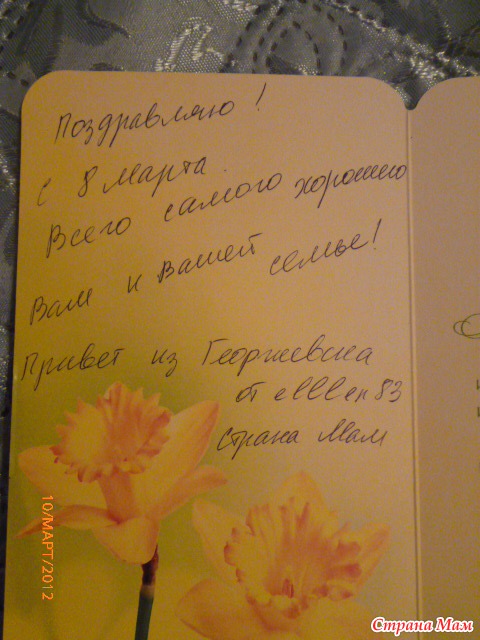 Поздравляю!
с 8 марта.
Всего самого хорошего
Вам и Вашей семье!
Привет из Георгиевска
от
Страна Мам
10/МАРТ/2012
Страна Мам